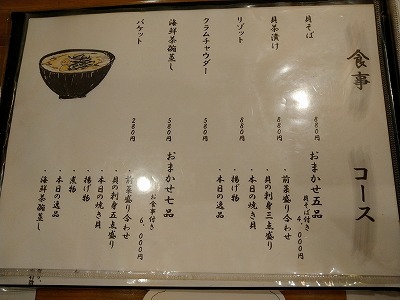 食事
貝そば 880円
貝茶漬け 880円
リゾット 880円
クラムチャウダー 580円
海鮮茶碗蒸し 580円
バケット 280円
コース
おまかせ五品
貝そば付き
4,000円
・前菜盛り合わせ
・貝の刺身三点盛り
・本日の焼き貝
・揚げ物
・本日の逸品
おまかせ七品
お食事付き
6,000円
・前菜盛り合わせ
・貝の刺身五点盛り
・本日の焼き貝
・揚げ物
・煮物
・本日の逸品
・海鮮茶碗蒸し